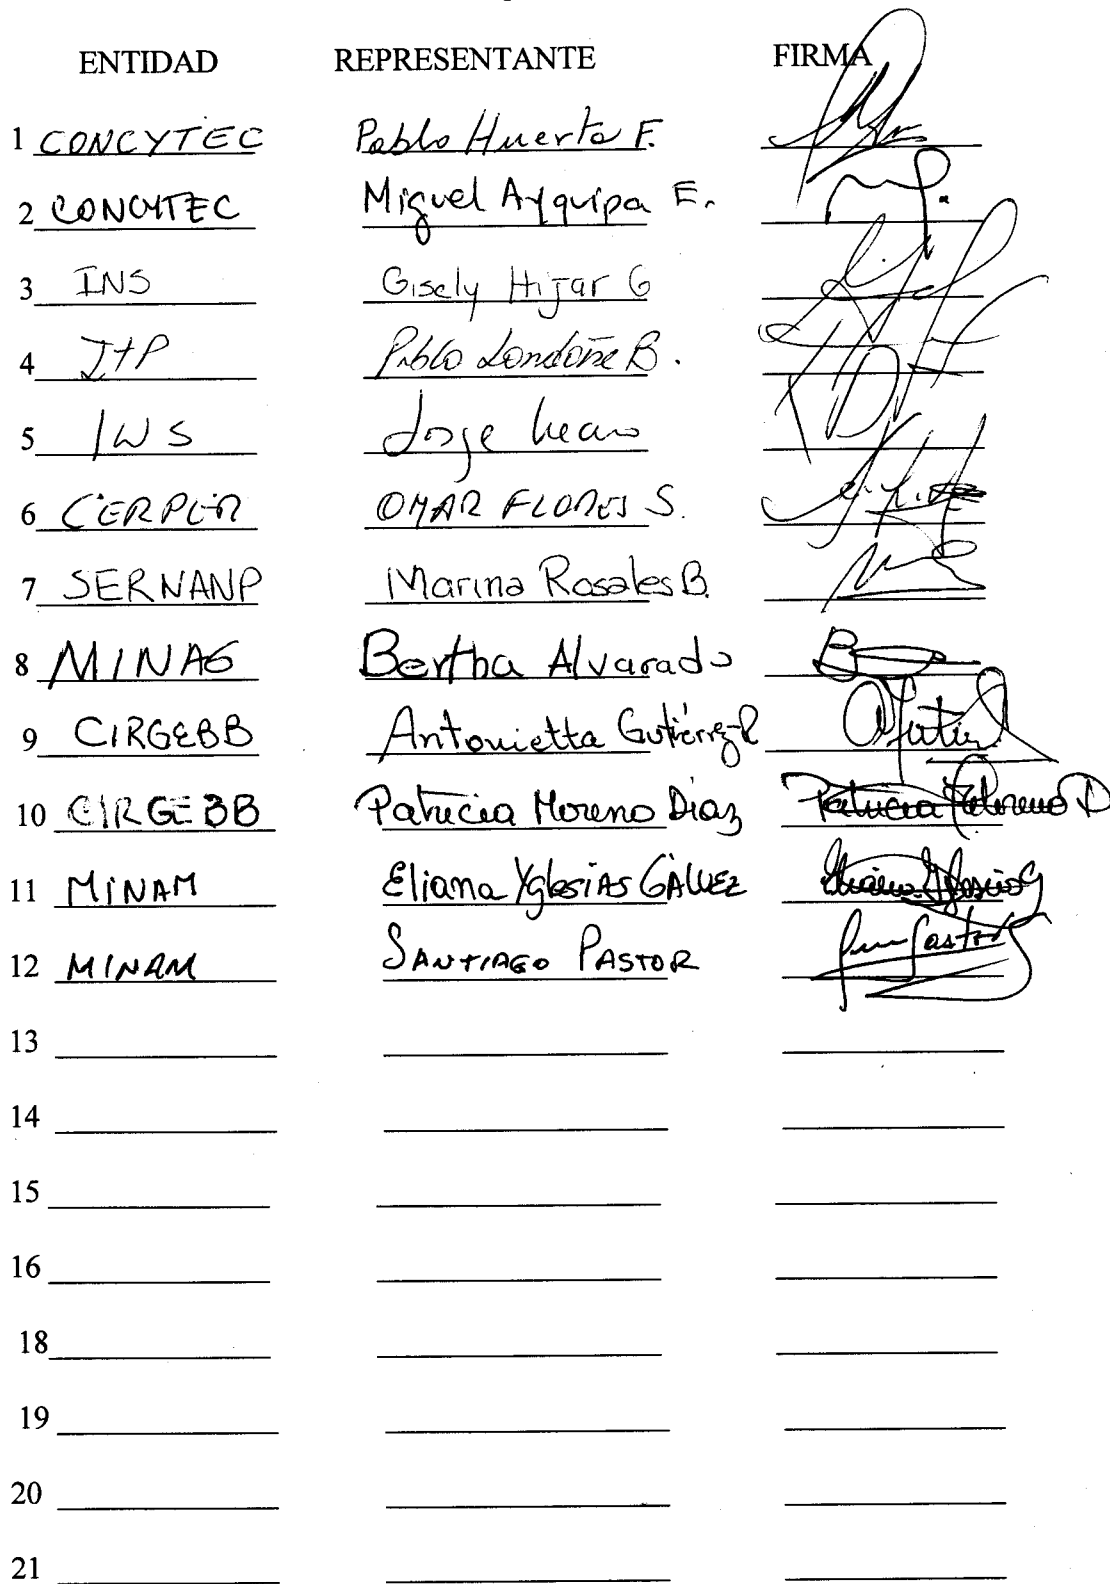 ENTIDAD REPRESENTANTE FIRMA
1 CONCYTEC Pablo Huerta F.
2 CONCYTEC Miguel Ayquipa E.
3 INS Gisely Hijar G
4 ITP Pablo Londoñe B.
5 INS Jorge
6 CERPER OMAR FLORES S.
7 SERNANP Marina Rosales B.
8 MINAG Bertha Alvarado
9 CIRGEBB Antonietta Gutiérrez R
10 CIRGEBB Patricia Moreno Diaz Patricia Moreno D
11 MINAM Eliana Yglesias GALVEZ
12 MINAM SANTIAGO PASTOR
13
14
15
16
18
19
20
21